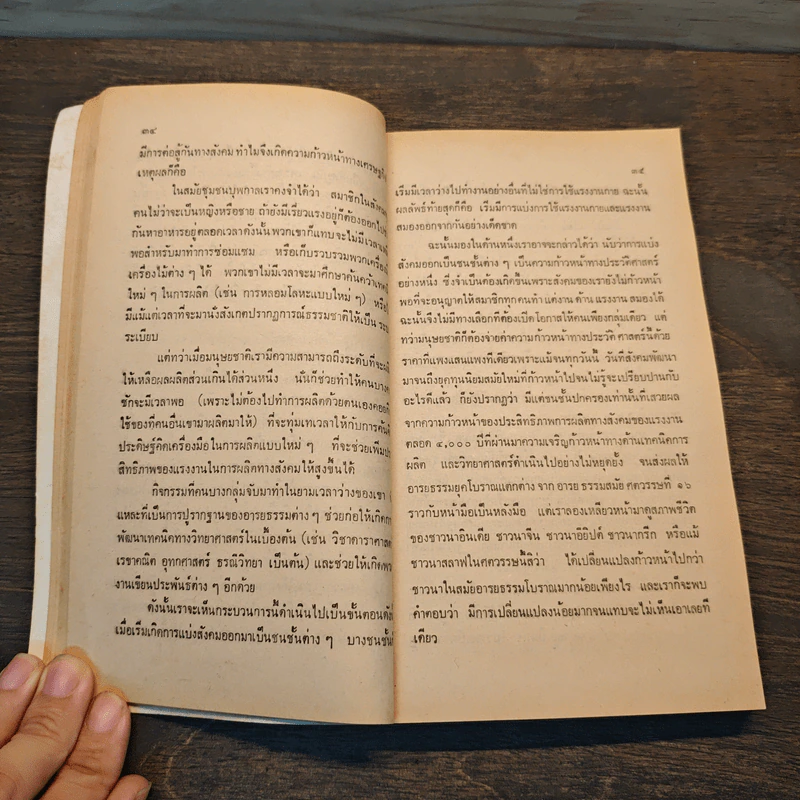 ๓๔
มีการต่อสู้กันทางสังคม ทำไมจึงเกิดความก้าวหน้าทางเศรษฐกิจ
เหตุผลก็คือ
ในสมัยชุมชนบุพกาลเราคงจำได้ว่า สมาชิกในสังคม
คนไม่ว่าจะเป็นหญิงหรือชาย ถ้ายังมีเรี่ยวแรงอยู่ก็ต้องออกไป
กันหาอาหารอยู่ตลอดเวลาดังนั้นพวกเขาก็แทบจะไม่มีเวลา
พอสำหรับมาทำการซ่อมแซม หรือเก็บรวบรวมพวกเครื่อง
เครื่องไม้ต่าง ๆ ได้ พวกเขาไม่มีเวลาจะมาศึกษาค้นคว้า
ใหม่ ๆ ในการผลิต (เช่น การหลอมโลหะแบบใหม่ ๆ) หรือ
มีแม้แต่เวลาที่จะมานั่งสังเกตปรากฏการณ์ธรรมชาติให้เป็น ระ
ระเบียบ
แต่ทว่าเมื่อมนุษยชาติเรามีความสามารถถึงระดับที่จะ
ให้เหลือผลผลิตส่วนเกินได้ส่วนหนึ่ง นั่นก็ช่วยทำให้คนบาง
ซักจะมีเวลาพอ (เพราะไม่ต้องไปทำการผลิตด้วยตนเองคอย
ใช้ของที่คนอื่นเขามาผลิตมาให้) ที่จะทุ่มเทเวลาให้กับการค้น
ประดิษฐ์คิดเครื่องมือในการผลิตแบบใหม่ ๆ ที่จะช่วยเพิ่ม
สิทธิภาพของแรงงานในการผลิตทางสังคมให้สูงขึ้นได้
กิจกรรมที่คนบางกลุ่มจับมาทำในยามเวลาว่างของเขา
แหละที่เป็นการปูรากฐานของอารยธรรมต่าง ๆ ช่วยก่อให้เกิด
พัฒนาเทคนิคทางวิทยาศาสตร์ในเบื้องต้น (เช่น วิชาดาราศาส
เรขาคณิต อุทกศาสตร์ ธรณีวิทยา เป็นต้น) และช่วยให้เกิด
งานเขียนประพันธ์ต่าง ๆ อีกด้วย
ดังนั้นเราจะเห็นกระบวนการนี้ดำเนินไปเป็นขั้นตอน
เมื่อเริ่มเกิดการแบ่งสังคมออกมาเป็นชนชั้นต่าง ๆ บางชนชั้น
๓๕
เริ่มมีเวลาว่างไปทำงานอย่างอื่นที่ไม่ใช่การใช้แรงงานกาย ฉะนั้น
ผลลัพธ์ท้ายสุดก็คือ เริ่มมีการแบ่งการใช้แรงงานกายและแรงงาน
สมองออกจากกันอย่างเด็ดขาด
ฉะนั้นมองในด้านหนึ่งเราอาจจะกล่าวได้ว่า นับว่าการแบ่ง
สังคมออกเป็นชนชั้นต่าง ๆ เป็นความก้าวหน้าทางประวัติศาสตร์
อย่างหนึ่ง ซึ่งจำเป็นต้องเกิดขึ้นเพราะสังคมของเรายังไม่ก้าวหน้า
พอที่จะอนุญาตให้สมาชิกทุกคนทำ แต่งาน ด้าน แรงงาน สมองได้
ฉะนั้นจึงไม่มีทางเลือกที่ต้องเปิดโอกาสให้คนเพียงกลุ่มเดียว แต่
ทว่ามนุษยชาติก็ต้องจ่ายค่าความก้าวหน้าทางประวัติ ศาสตร์นี้ด้วย
ราคาที่แพงแสนแพงทีเดียวเพราะแม้จนทุกวันนี้ วันที่สังคมพัฒนา
มาจนถึงยุคทุนนิยมสมัยใหม่ที่ก้าวหน้าไปจนไม่รู้จะเปรียบปานกับ
อะไรดีแล้ว ก็ยังปรากฏว่า มีแต่ชนชั้นปกครองเท่านั้นที่เสวยผล
จากความก้าวหน้าของประสิทธิภาพการผลิตทางสังคมของแรงงาน
ตลอด ๔,๐๐๐ ปีที่ผ่านมาความเจริญก้าวหน้าทางด้านเทคนิคการ
ผลิต และวิทยาศาสตร์ดำเนินไปอย่างไม่หยุดยั้ง จนส่งผลให้
อารยธรรมยุคโบราณแตกต่างจาก อารย ธรรมสมัย ศตวรรษที่ ๑๖
ราวกับหน้ามือเป็นหลังมือ แต่เราลองเหลียวหน้ามาดูสภาพชีวิต
ของชาวนาอินเดีย ชาวนาจีน ชาวนาอียิปต์ ชาวนากรีก หรือแม้
ชาวนาสลาฟในศตวรรษนี้สิว่า ได้เปลี่ยนแปลงก้าวหน้าไปกว่า
ชาวนาในสมัยอารยธรรมโบราณมากน้อยเพียงไร และเราก็จะพบ
คำตอบว่า มีการเปลี่ยนแปลงน้อยมากจนแทบจะไม่เห็นเอาเลยที
เดียว